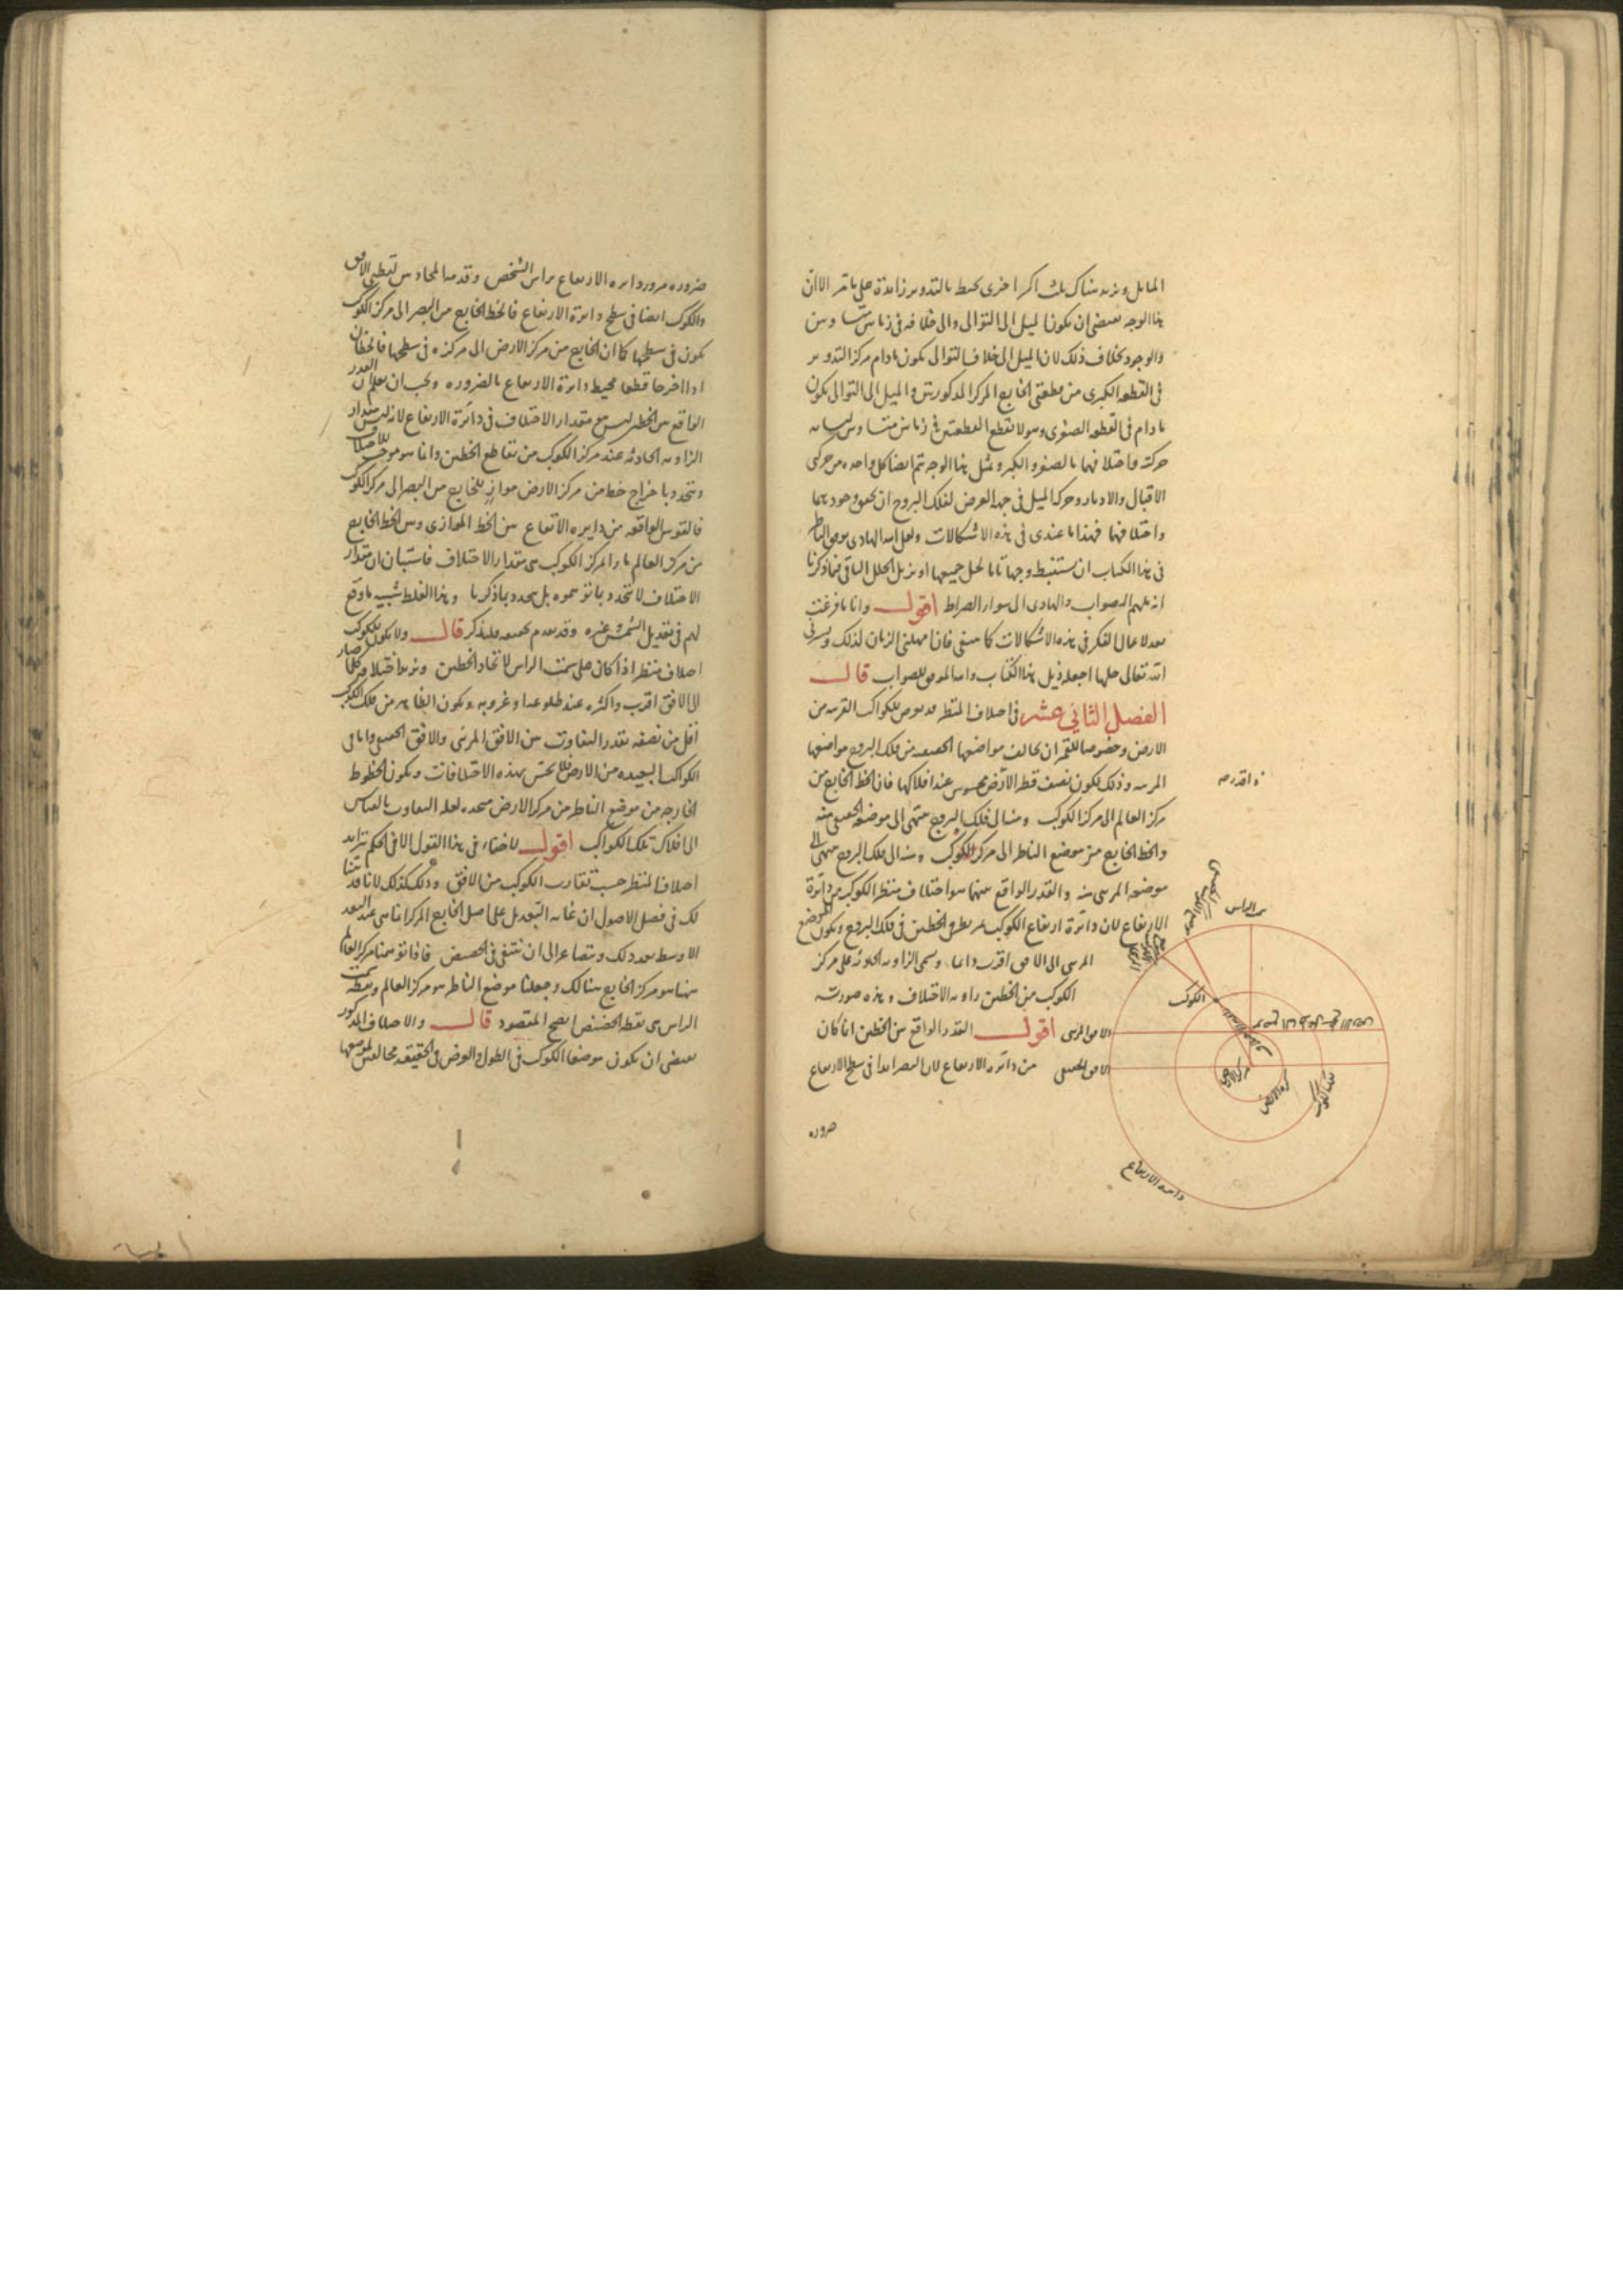 المايل ونزيد هناك ثلث اكر اخرى تحيط بالتدوير زايدة على ما مر الا ان
هذا الوجه يقتضى ان يكون الميل الى التوالى والى خلافه فى زمانين متساويين
والوجود بخلاف ذلك لان الميل الى خلاف التوالى يكون مادام مركز التدوير
فى القطعه الكبرى من قطعتى الخارج المركز المذكورتين والميل الى التوالى يكون
مادام فى القطعه الصغرى وهو لا يقطع القطعتين فى زمانين متساويين لتشابه
حركته واختلافهما بالصغر والكبر وبمثل هذا الوجه تتم ايضا كل واحده من حركتى
الاقبال والادبار وحركة الميل فى جهة العرض لفلك البروج ان تحقق وجودهما
واختلافهما فهذا ما عندى فى هذه الاشكالات ولعل الله الهادى يوفق الناظر
فى هذا الكتاب ان يستنبط وجها تاما لحل جميعها او يزيل الخلل الباقى فيما ذكرنا
انه ملهم الصواب والهادى الى سواء الصراط اقول وانا ما فرغت
بعد لاعمال الفكر فى هذه الاشكالات كما ينبغى فان امهلنى الزمان لذلك ويسرنى
الله تعالى حلها اجعله ذيل هذا الكتاب والله الموفق للصواب قال
الفصل الثانى عشر فى اختلاف المنظر قد يعرض للكواكب القريبه من
الارض وخصوصا للقمر ان يخالف مواضعها الحقيقيه من فلك البروج مواضعها
المرييه وذلك لكون نصف قطر الارض محسوس عند افلاكها فان الخط الخارج من
مركز العالم الى مركز الكوكب ومنه الى فلك البروج ينتهى الى موضعه الحقيقى منه
والخط الخارج من موضع الناظر الى مركز الكوكب ومنه الى فلك البروج ينتهى الى
موضعه المرىى منه والقدر الواقع بينهما هو اختلاف منظر الكوكب من دايرة
الارتفاع لان دايرة ارتفاع الكوكب تمر بطرفى الخطين فى فلك البروج ويكون الموضع
المرىى الى الافق اقرب دايما ويسمى الزاويه الحادثه على مركز
الكوكب من الخطين زاويه الاختلاف وهذه صورته
اقول القدر الواقع بين الخطين انما كان
من دائره الارتفاع لان البصر ابدا فى سطح الارتفاع
ضروره
سمت الراس
الكوكب
الافق المرىى
الافق الحقيقى
مركز الارض
كرة الارض
فلك الكوكب
دايره الارتفاع
ضروره مرور دايره الارتفاع براس الشخص وقدمه المحاذيين لقطبى الافق
والكوكب ايضا فى سطح دايرة الارتفاع فالخط الخارج من البصر الى مركز الكوكب
يكون فى سطحها كما ان الخارج من مركز الارض الى مركزه فى سطحها فالخطان
اذا اخرجا قطعا محيط دايرة الارتفاع بالضروره ويجب ان يعلم ان القدر
الواقع بين الخطين ليس مقدار الاختلاف فى دائرة الارتفاع لانه ليس بمقدار
الزاويه الحادثه عند مركز الكوكب من تقاطع الخطين وانما هو موجب للاختلاف
ويتحدد باخراج خط من مركز الارض مواز للخارج من البصر الى مركز الكوكب
فالقوس الواقعه من دايره الارتفاع بين الخط الموازى وبين الخط الخارج
من مركز العالم مارا بمركز الكوكب هى مقدار الاختلاف فاستبان ان مقدار
الاختلاف لا يتحدد بما توهموه بل يتحدد بما ذكرنا وهذا الغلط شبيه بما وقع
لهم فى تعديل الشمس وغيره وقد تقدم تحقيقه فليتذكر قال ولا يكون للكوكب
اختلاف منظر اذا كان على سمت الراس لاتحاد الخطين ويزيد اختلافه كلما صار
الى الافق اقرب واكثره عند طلوعه او غروبه ويكون الظاهر من فلك الكوكب
اقل من نصفه بقدر التفاوت بين الافق المرىى والافق الحقيقى واما فى
الكواكب البعيده من الارض فلا يحس بهذه الاختلافات ويكون الخطوط
الخارجه من موضع الناظر من مركز الارض متحده لعله التفاوت بالقياس
الى افلاك تلك الكواكب اقول لا خفاء فى هذا القول الا فى الحكم بتزايد
اختلاف المنظر حسب تقارب الكوكب من الافق وذلك كذلك لانا قد بينا
لك فى فصل الاصول ان غايه التعديل على اصل الخارج المركز انما هى عند البعد
الاوسط بعد ذلك ويتصاغر الى ان ينتفى فى الحضيض فاذا توهمنا مركز العالم
ههنا هو مركز الخارج هنالك وجعلنا موضع الناظر هو مركز العالم ونقطه سمت
الراس هى نقطه الحضيض اتضح المقصود قال والاختلاف المذكور
يقتضى ان يكون موضعا الكوكب فى الطول والعرض فى الحقيقه مخالفين لموضعيهما